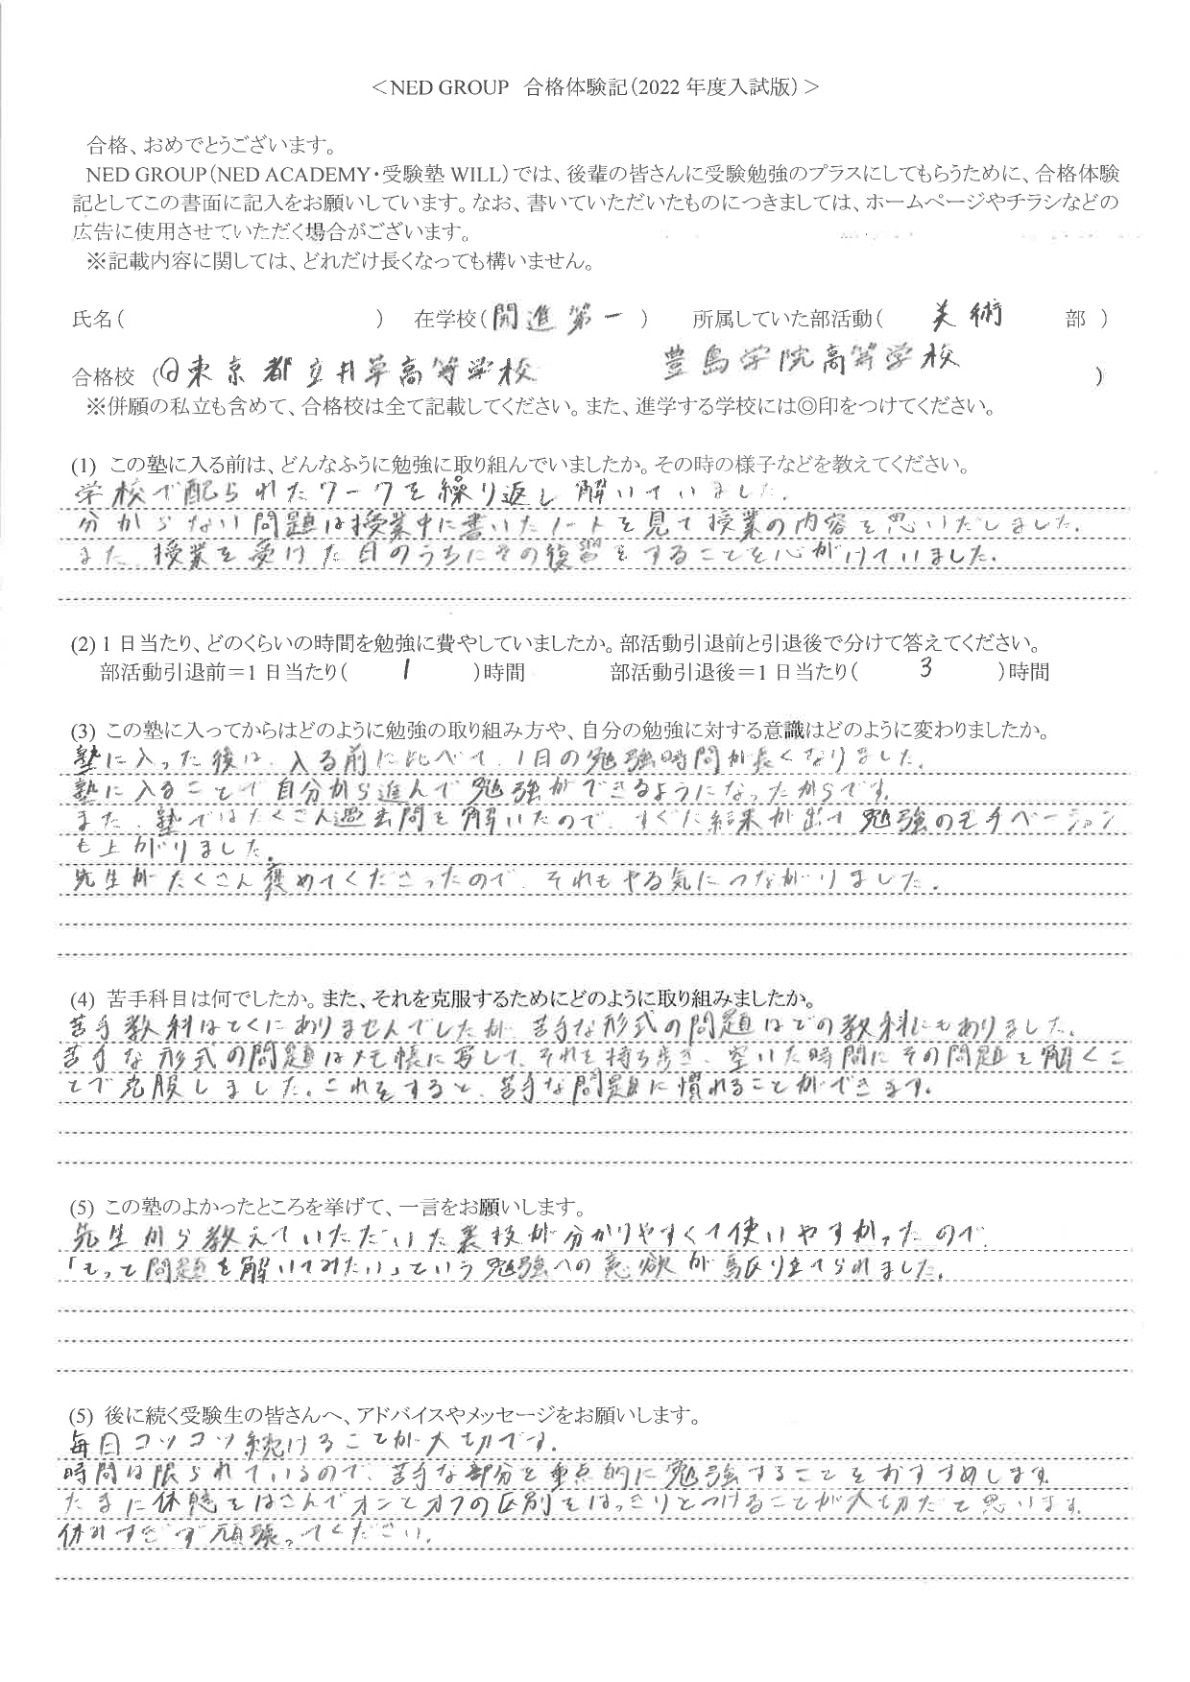 ＜NED GROUP 合格体験記（2022 年度入試版）＞
合格、おめでとうございます。
NED GROUP（NED ACADEMY・受験塾 WILL）では、後輩の皆さんに受験勉強のプラスにしてもらうために、合格体験
記としてこの書面に記入をお願いしています。なお、書いていただいたものにつきましては、ホームページやチラシなどの
広告に使用させていただく場合がございます。
※記載内容に関しては、どれだけ長くなっても構いません。
氏名（　　　）　在学校（開進第一）　所属していた部活動（　美術　部　）
合格校　（◎東京都立井草高等学校　　豊島学院高等学校　）
※併願の私立も含めて、合格校は全て記載してください。また、進学する学校には◎印をつけてください。
(1) この塾に入る前は、どんなふうに勉強に取り組んでいましたか。その時の様子などを教えてください。
学校で配られたワークを繰り返し解いていました。
分からない問題は授業中に書いたノートを見て授業の内容を思いだしました。
また、授業を受けた日のうちにその復習をすることを心がけていました。
(2) 1 日当たり、どのくらいの時間を勉強に費やしていましたか。部活動引退前と引退後で分けて答えてください。
部活動引退前＝1 日当たり（　1　）時間　　部活動引退後＝1 日当たり（　3　）時間
(3) この塾に入ってからはどのように勉強の取り組み方や、自分の勉強に対する意識はどのように変わりましたか。
塾に入った後は、入る前に比べて、1日の勉強時間が長くなりました。
塾に入ることで自分から進んで勉強ができるようになったからです。
また、塾ではたくさん過去問を解いたので、すぐに結果が出て勉強のモチベーション
も上がりました。
先生がたくさん褒めてくださったので、それもやる気につながりました。
(4) 苦手科目は何でしたか。また、それを克服するためにどのように取り組みましたか。
苦手教科はとくにありませんでしたが、苦手な形式の問題はどの教科にもありました。
苦手な形式の問題はメモ帳に写して、それを持ち歩き、空いた時間にその問題を解くこ
とで克服しました。これをすると、苦手な問題に慣れることができます。
(5) この塾のよかったところを挙げて、一言をお願いします。
先生から教えていただいた裏技が分かりやすくて使いやすかったので、
「もっと問題を解いてみたい」という勉強への意欲が駆り立てられました。
(5) 後に続く受験生の皆さんへ、アドバイスやメッセージをお願いします。
毎日コツコツ続けることが大切です。
時間は限られているので、苦手な部分を重点的に勉強することをおすすめします。
たまに休憩をはさんでオンとオフの区別をはっきりとつけることが大切だと思います。
休みすぎず頑張ってください。